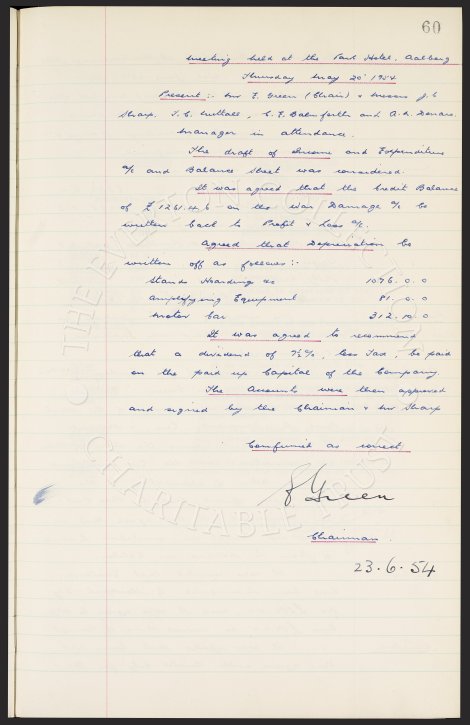 60
Meeting held at the Park Hotel, Aalborg
Thursday May 20' 1954
Present:- Mr F. Green (Chair) & Messrs J. C.
Sharp, T. C. Nuttall, C. F. Balmforth and A. R. Denars
Manager in attendance.
The draft of Income and Expenditure
a/c and Balance Sheet was considered.
It was agreed that the Credit Balance
of £1261.4.6 on the War Damage a/c be
written back to Profit & Loss a/c.
Agreed that Depreciation be
written off as follows:-
Stands Hoarding &c 1076.0.0
Amplifying Equipment 81.0.0
Motor Car 312.10.0
It was agreed to recommend
that a dividend of 7½%, less Tax, be paid
on the paid up Capital of the Company.
The Accounts were then approved
and signed by the Chairman & Mr Sharp
Confirmed as correct
F Green
Chairman.
23.6.54
THE EVERTON COLLECTION
CHARITABLE TRUST